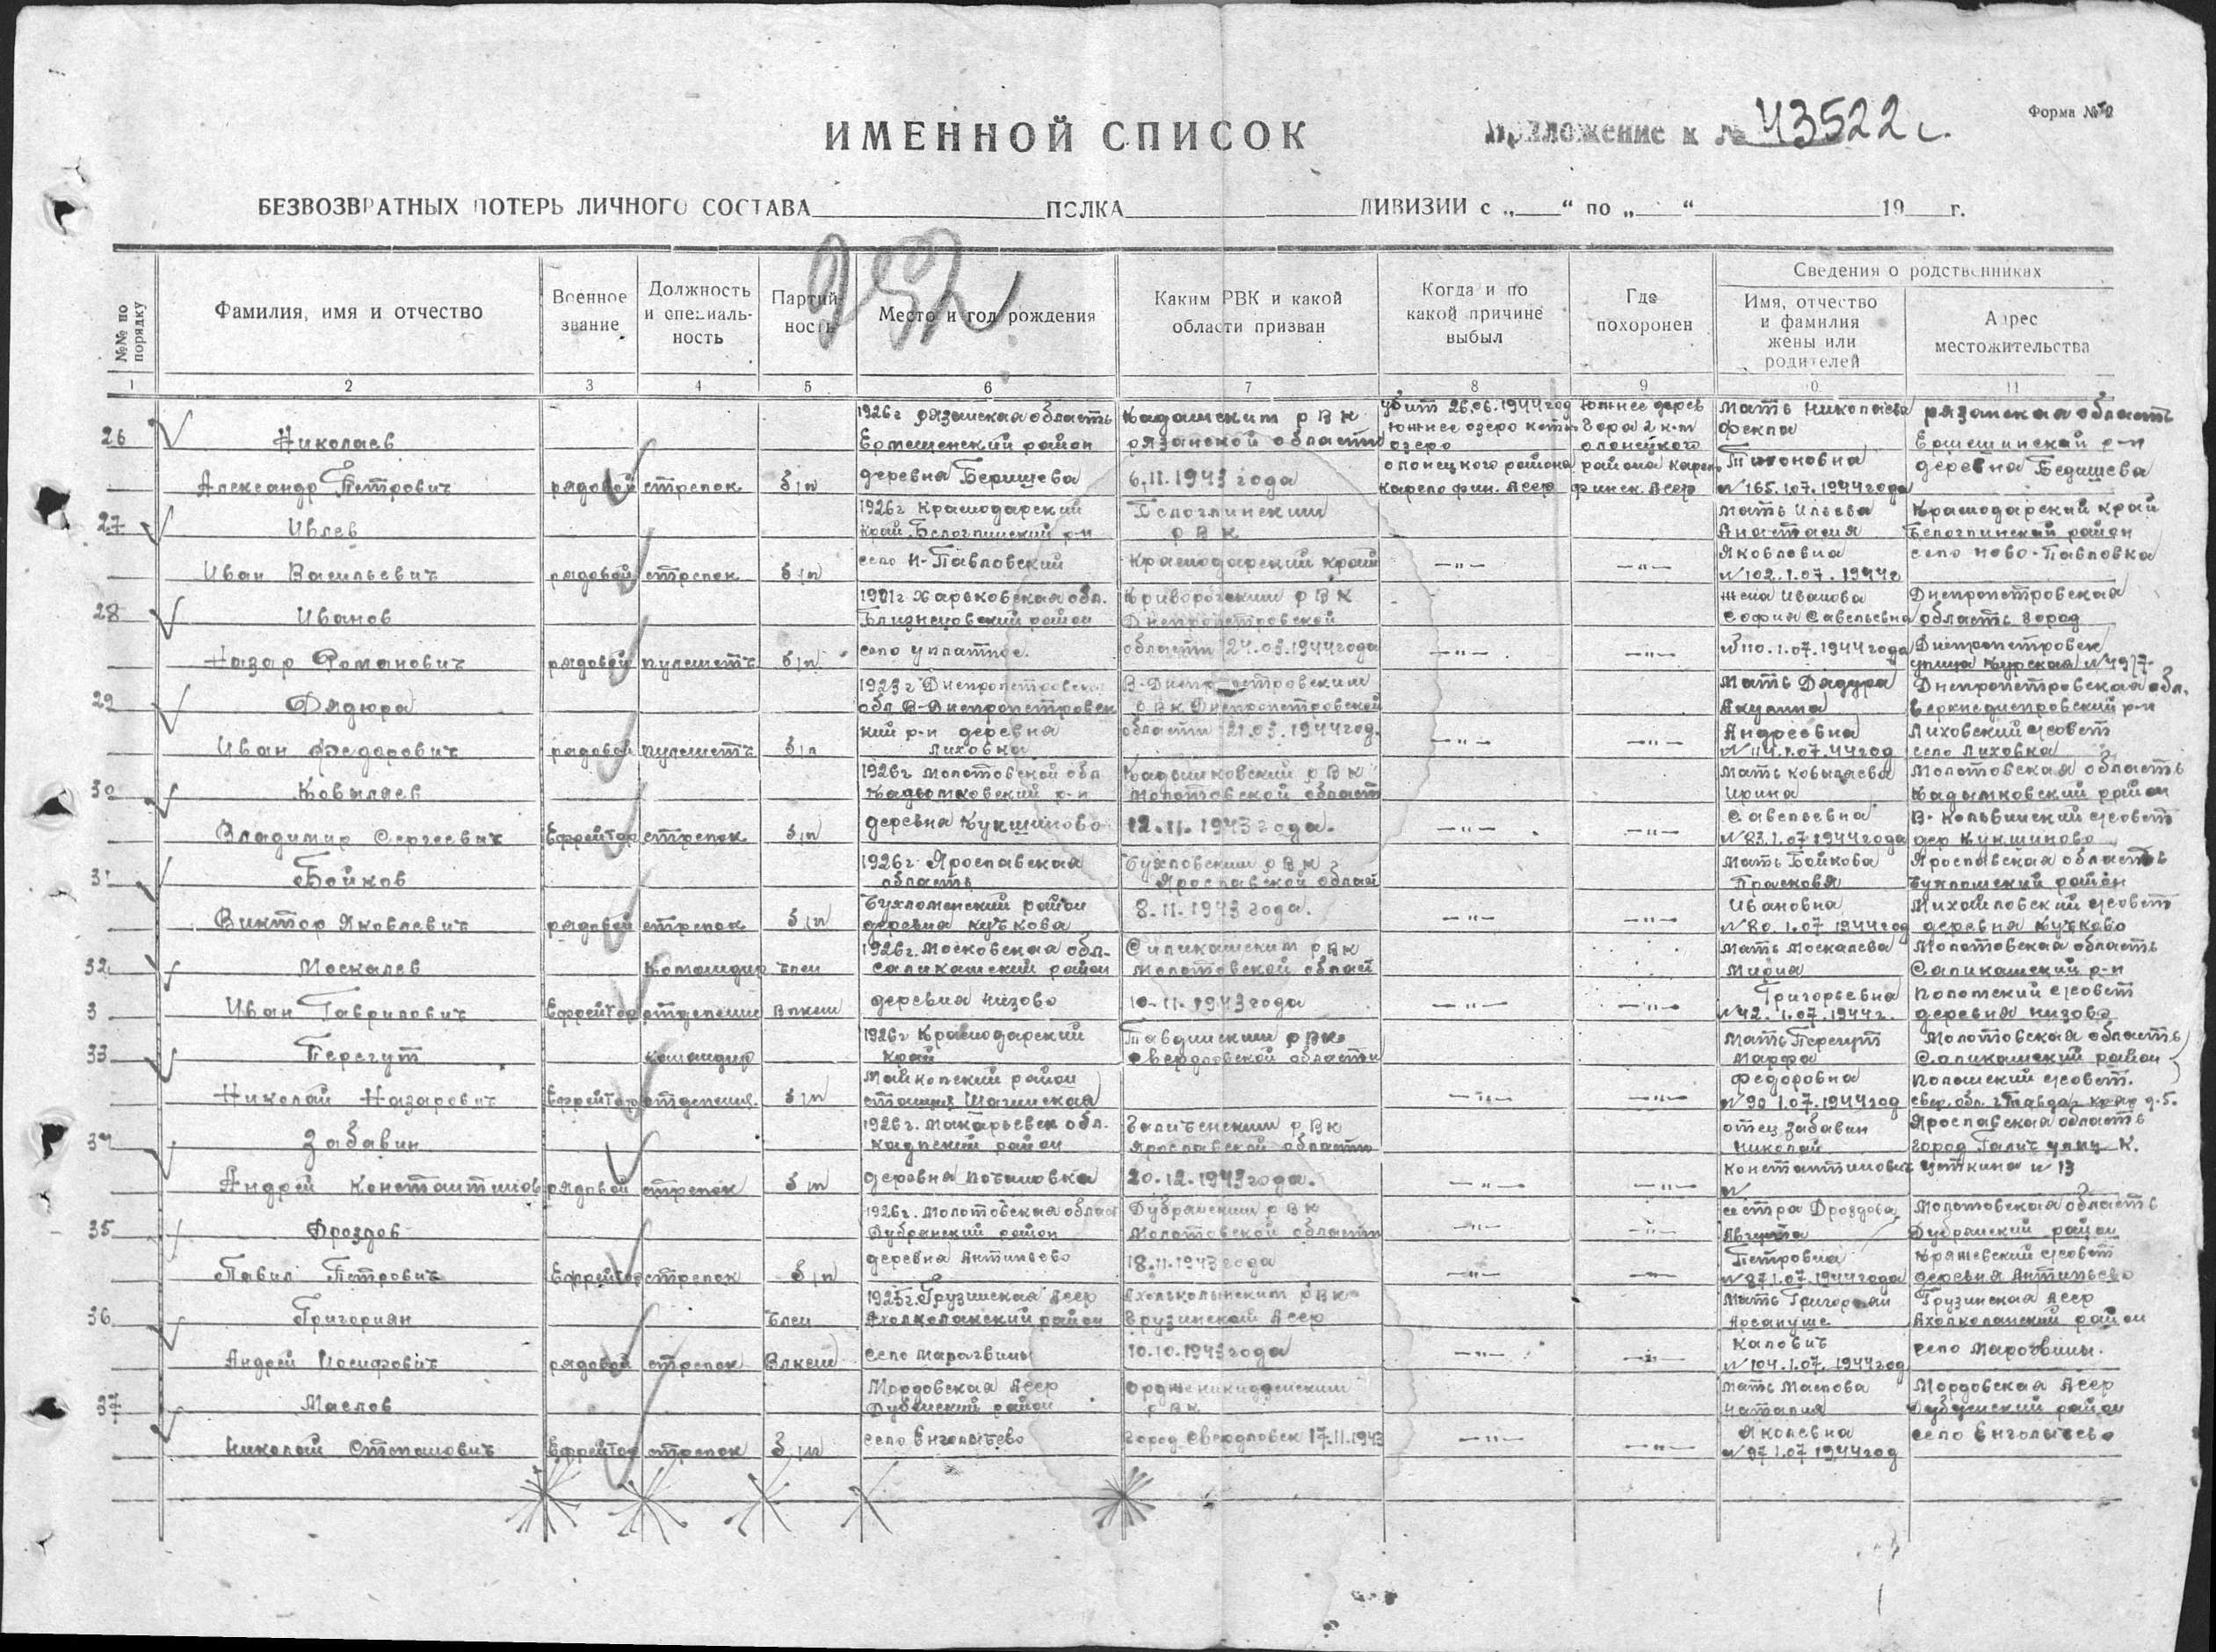 Форма №2
ИМЕННОЙ СПИСОК
Приложение к № 43522с.
БЕЗВОЗВРАТНЫХ ПОТЕРЬ ЛИЧНОГО СОСТАВА ПОЛКА ДИВИЗИИ с „ “ по „ “ 19 г.
№№ по порядку
Фамилия, имя и отчество
Военное звание
Должность и специаль-ность
Партий-ность
Место и год рождения
Каким РВК и какой области призван
Когда и по какой причине выбыл
Где похоронен
Сведения о родственниках
Имя, отчество и фамилия жены или родителей
Адрес местожительства
1 2 3 4 5 6 7 8 9 10 11
26 Николаев
Александр Петрович рядовой стрелок б/п
1926г рязанская область
Ермешенский район
деревна Беришева
Кадашским рВК
рязанской области
6.11.1943 года
убит 26.06.1944год
южнее озеро
озеро
олонецкого района
карело фин. Асср
южнее дерев
2 к-т
олонецкого
района карел
финск. Асср
мать Николаева
Фекла
Тихоновна
№165.1.07.1944года
рязанская область
Ермешинский р-н
деревна Бедишева
27 Ивлев
Иван Васильевич рядовой стрелок б/п
1926г Краснодарский
край Белоглинский р-н
село Н-Павловский
Белоглинским
рВК
Краснодарский край
—"— —"—
мать Ильева
Анастасия
Яковловна
№102.1.07.1944г
Краснодарский край
Белоглинский район
село ново-Павловка
28 Иванов
Назар Романович рядовой пулеметч б/п
1901г Харьковская обл.
Близнецовский район
село уплатное.
Криворогским рВК
Днепропетровской
области 24.03.1944года
—"— —"—
жена Иванова
София Савельевна
№110.1.07.1944года
Днепропетровская
область город
Днепропетровск
улица Курская №49/7
29 Дядюра
Иван Федорович рядовой пулеметч б/п
1923г Днепропетровск
обл В-Днепропетровск
кий р-н деревна
лиховка
В-Днепропетровским
рВК Днепропетровской
области 21.03.1944год.
—"— —"—
мать Дядура
Акулина
Андреевна
№114.1.07.44год
Днепропетровская обл.
Верхнеднепровский р-н
Лиховский с/совет
село Лиховка
30 Ковыляев
Владимир Сергеевич Ефрейтор стрелок б/п
1926г молотовской обл
Кадымковский р-н
деревна Кукшиново
Кадымковский рВК
Молотовской област
12.11.1943года.
—"— —"—
мать ковыляева
Ирина
Савельевна
№83.1.07.1944года
Молотовская область
Кадымковский район
В-Кольвинский с/совет
дер Кукшиново
31 Бойков
Виктор Яковлевич рядовой стрелок б/п
1926г Ярославская
область
Чухломенский район
деревна кучкова
Чухловским рВК
Ярославской област
8.11.1943 года.
—"— —"—
мать Бойкова
Прасковя
Ивановна
№80.1.07.1944год
Ярославская область
Чухломский район
Михайловский с/совет
деревна Кучково
32 Москалев
Иван Гаврилович Ефрейтор командир отделение член Влксм
1926г. московская обл.
Саликамский район
деревна низово
Силикамским рВК
Молотовской област
10.11.1943года
—"— —"—
мать москалева
Мирия
Григорьевна
№42.1.07.1944г.
Молотовская область
Саликамский р-н
Половский с/совет
деревна низова
33 Перегут
Николай Назарович Ефрейтор командир отделения. б/п
1926г Краснодарский
край
Майкопский район
станция Шагинская
Тавдинским рВК
Свердловской области
—"— —"—
мать Перегут
Марфа
Федоровна
№90 1.07.1944год
Молотовская область
Саликамский район
Поломский с/совет.
свер. обл. г Тавда
34 Забавин
Андрей Константинов рядовой стрелок б/п
1926г. Макарьевск обл.
Кадпский район
деревна почановка
Галиченским рВК
Ярославской области
20.12.1943года.
—"— —"—
отец Забавин
Николай
Константинович
№
Ярославская область
город Галич улиц К.
Цеткина №13
35 Дроздов
Павил Петрович Ефрейтор стрелок б/п
1926г. Молотовская област
Дубранский район
деревна Антипьево
Дубранским рВК
Молотовской области
18.11.1943года
—"— —"—
сестра Дроздова
Августа
Петровна
№87.1.07.1944года
Молотовская область
Дубранский район
Кряжевский с/совет
деревня Антипьево
36 Григориян
Андрей Иосифович рядовой стрелок член Влксм
1925г. Грузинская Асср
Ахолколакский район
село марагвины
Ахолькольнским рВК
Грузинской Асср
10.10.1943года
—"— —"—
мать Григориян
Арсануше
Калович
№104.1.07.1944год
Грузинская Асср
Ахолколанский район
село марагвины.
37 Маслов
Николай Степанович Ефрейтор стрелок б/п
Мордовская Асср
Дубенский район
село Енголычево
Орджоникидзенским
рВК
город Свердловск 17.11.1943
—"— —"—
мать Маслова
Наталия
Яколевна
№97 1.07.1944год
Мордовская Асср
Дубенский район
село Енголычево